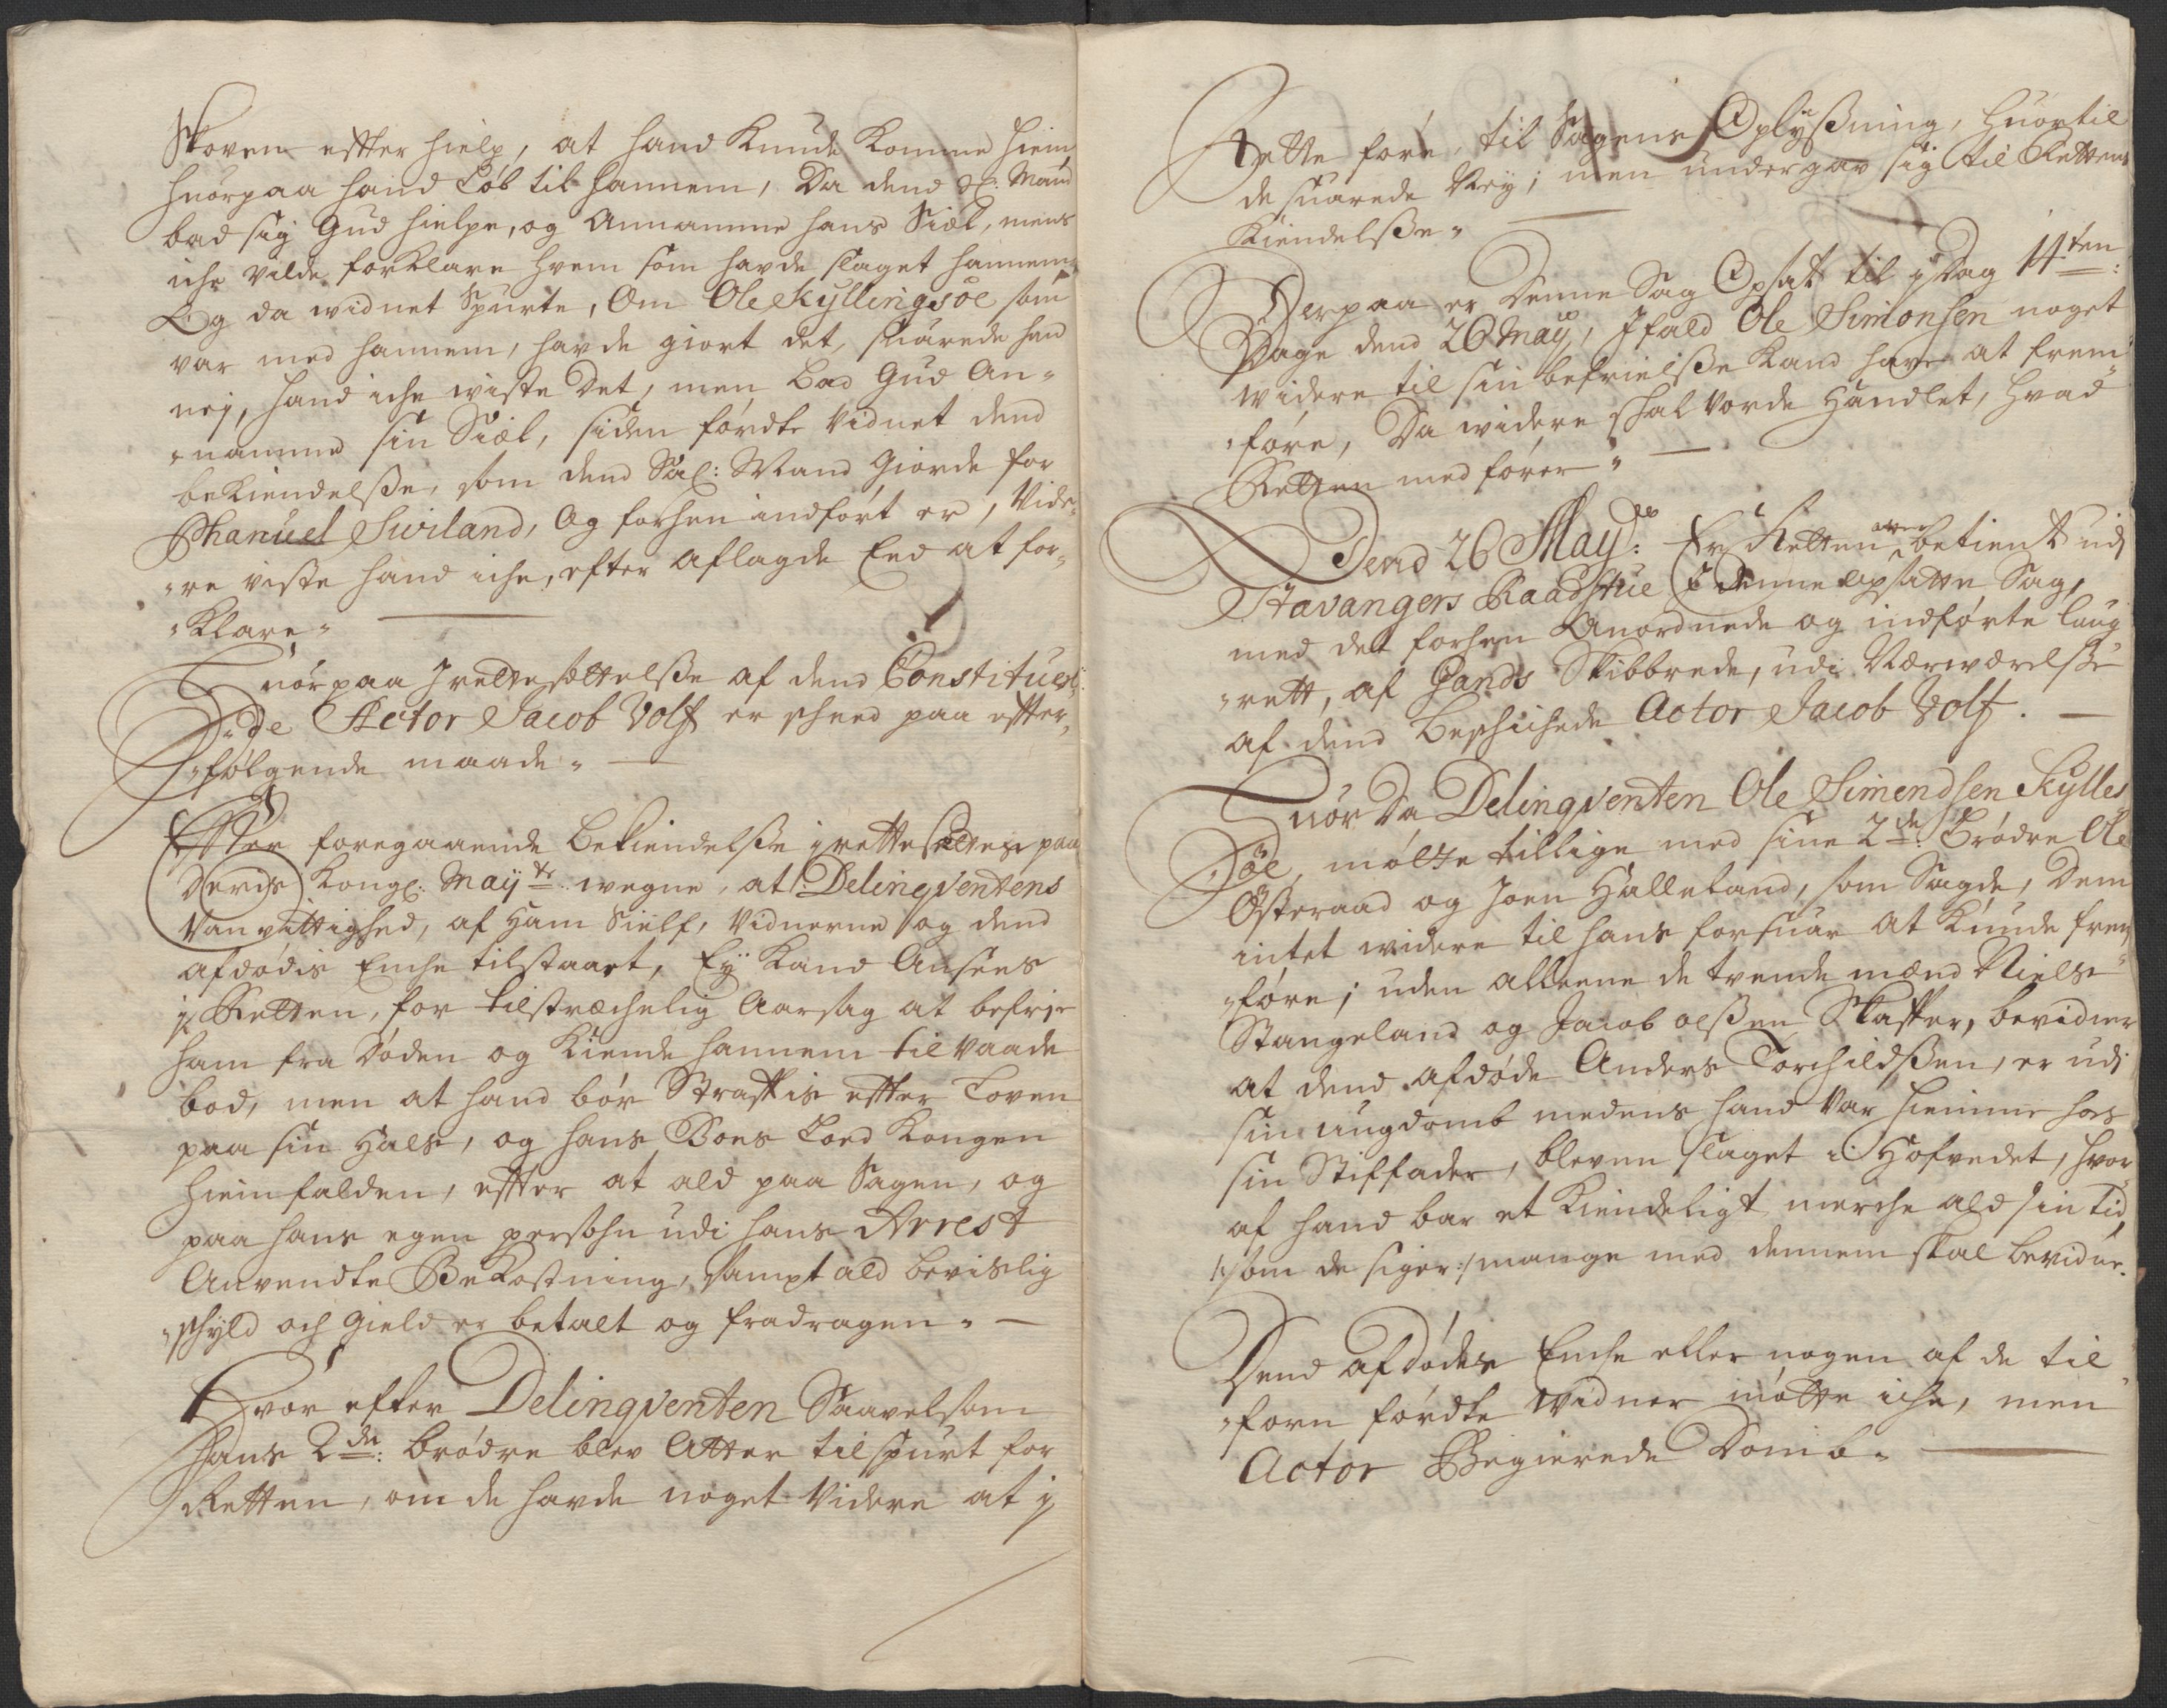 Skoven effter hielp, at hand kunde komme hiem,
huorpaa hand Løb til hannem, Da dend Sl: Mand
bad sig Gud hielpe, og Annamme hans Siæl, mens
iche vilde forklare hvem som hafde slaget hannem,
Og da widnet Spurte, Om Ole Kyllingsøe som
var med hannem, havde giort det, suarede hand
nej, hand iche wiste det, men bad Gud An-
-namme sin Siæl, siden førdte vidnet dend
bekiendelsse, som dend Sal: Mand giorde for
Phanuel Swiland, Og forhen indført er, Vide-
-re viste hand iche, efter aflagde Eed at for-
-klare.
Huorpaa Jrettesættelsse af dend Constituer-
-de Actor Jacob Volf er scheed paa effter-
-følgende maade.
Effter foregaaende bekiendelsse jrettesættes paa
Deris Kongl: Mayts wegne, at Delinqventens
Vanvittighed, af Ham Sielf, Vidnerne og dend
afdødis Enche tilstaaet, Ey kand Ansees
j Retten, for tilstræchelig Aarsag at befrje
ham fra Døden og kiende hannem til vaade
bod, men at hand bør Straffis effter Loven
paa sin Hals, og hans Boes Lod kongen
hiemfalden, effter at ald paa Sagen, og
paa hans egen persohn udi hans Arrest
Anvendte Bekostning, sampt ald bevislig
schyld och gield er betalt og fradragen.
Hvor efter Delinqventen Saavelsom
hans 2de: brødre blev Atter tilspurt for
Retten, om de havde noget videre at j
Rette føre til Sagens Oplyssning, huortil
de suarede Ney; men undergav sig til Rettens
Kiendelsse.
Derpaa er Denne Sag Opsat til j Dag 14ten:
Dage dend 26 May, Jfald Ole Simonsen noget
widere til sin befrielsse kand have at frem-
-føre, Da widere schal vorde Handlet, hvad
Retten medfører.
Dend 26 May: Er Retten atter betient udj
Stavangers Raadstue i denne opsatte Sag,
med det forhen Anordnede og indførte laug-
-rett, af Jands Skibbrede, udi Nærwærelsse
af dend beschichede Actor Jacob Volf.
Huor Da Delinqventen Ole Simendsen Kylles
Øe, mødte tillige med sine 2de: brødre Ole
Østeraad og Joen Hålleland, som Sagde, Dem
intet widere til hans forsuar at kunde frem
-føre; uden alleene de tvende mænd Niels
Stangeland og Jacob olssen Skaffer, bevidner
at dend afdøde Anders Torchildssen, er udj
sin ungdomb medens hand var hiemme hos
sin Stiffader, bleven slaget i Hofvedet, hvor
af hand bar et kiendeligt merche ald sin tid,
/:som de siger:/ mange med dennem skal bevidne.
Dend afdødes Enche eller nogen af de til
-forn førdte widner mødte iche, men
Actor Begierede Domb.